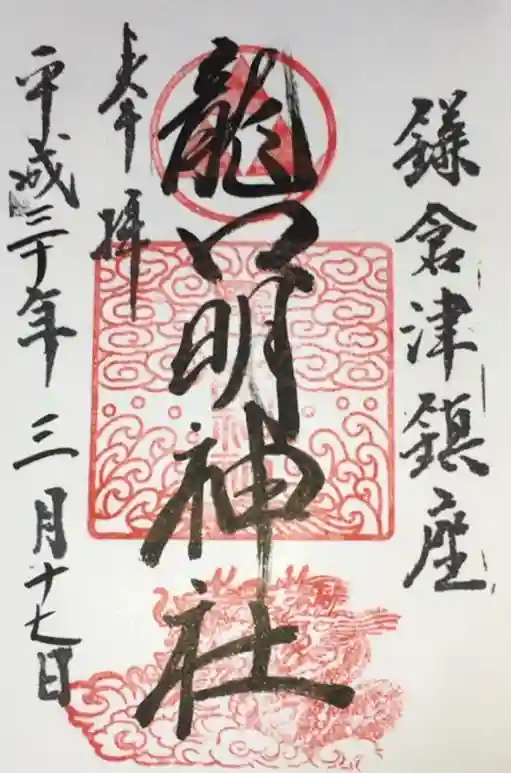 鎌倉津鎮座
奉拝
龍口明神社
平成三十年三月十七日